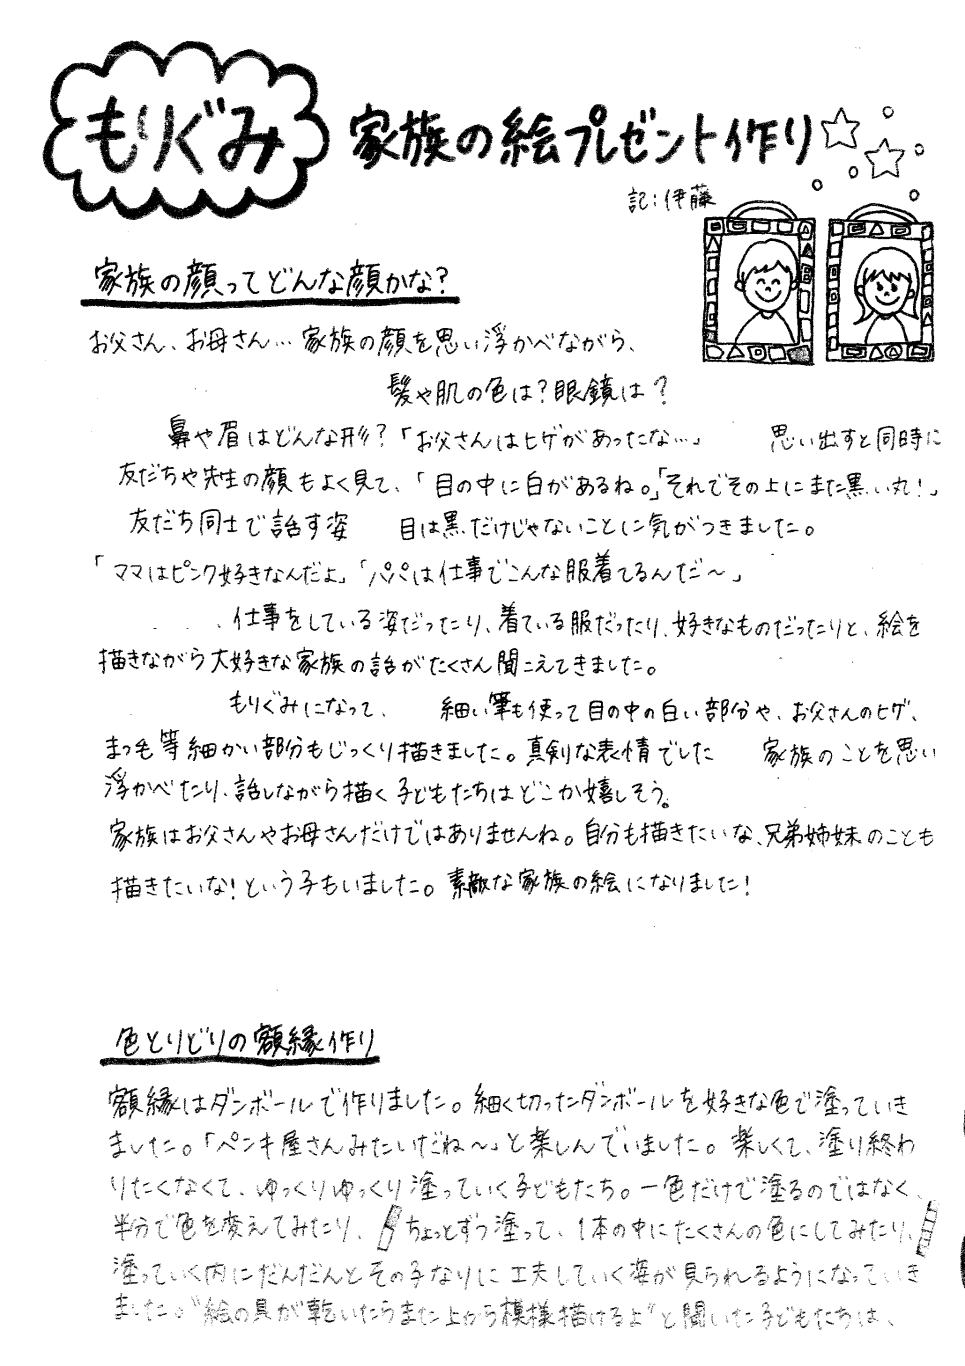 もりぐみ 家族の絵プレゼント作り
記:伊藤
家族の顔ってどんな顔かな?
お父さん、お母さん…家族の顔を思い浮かべながら、
髪や肌の色は?眼鏡は?
鼻や眉はどんな形?「お父さんはヒゲがあったな…」 思い出すと同時に
友だちや先生の顔もよく見て、「目の中に白があるね。」「それでその上にまた黒い丸!」
友だち同士で話す姿 目は黒だけじゃないことに気がつきました。
「ママはピンク好きなんだよ」「パパは仕事でこんな服着てるんだ~」
仕事をしている姿だったり、着ている服だったり、好きなものだったりと、絵を
描きながら大好きな家族の話がたくさん聞こえてきました。
もりぐみになって、 細い筆も使って目の中の白い部分や、お父さんのヒゲ、
まつ毛等細かい部分もじっくり描きました。真剣な表情でした 家族のことを思い
浮かべたり、話しながら描く子どもたちはどこか嬉しそう。
家族はお父さんやお母さんだけではありませんね。自分も描きたいな、兄弟姉妹のことも
描きたいな!という子もいました。素敵な家族の絵になりました!
色とりどりの額縁作り
額縁はダンボールで作りました。細く切ったダンボールを好きな色で塗っていき
ました。「ペンキ屋さんみたいだね~」と楽しんでいました。楽しくて、塗り終わ
りたくなくて、ゆっくりゆっくり塗っていく子どもたち。一色だけで塗るのではなく、
半分で色を変えてみたり、ちょっとずつ塗って、1本の中にたくさんの色にしてみたり、
塗っていく内にだんだんとその子なりに工夫していく姿が見られるようになっていき
ました。"絵の具が乾いたらまた上から模様描けるよ"と聞いた子どもたちは、